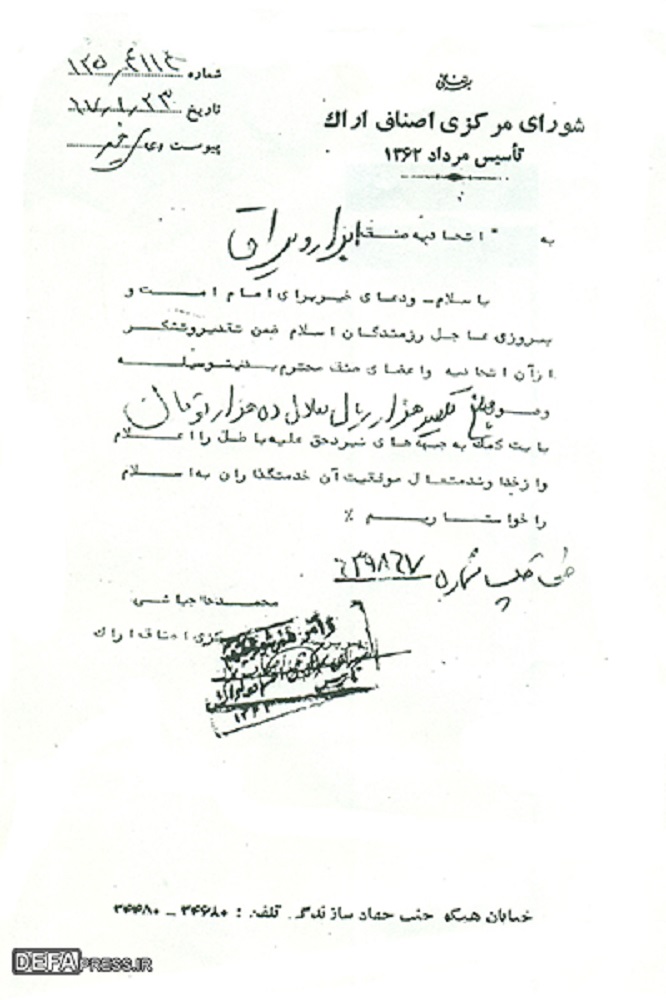 شماره ۱۲۵/۴۱۱۴
تاریخ ۶۷/۱/۲۳
پیوست
شورای مرکزی اصناف اراک
تأسیس مرداد ۱۳۶۲
به " اتحادیه صنف ابزار و یراق
با سلام و دعای خیر برای امام امت و
پیروزی عاجل رزمندگان اسلام ضمن تقدیر و تشکر
از آن اتحادیه و اعضای صنف محترم بدینوسیله
وصول مبلغ یکصد هزار ریال معادل ده هزار تومان
بابت کمک به جبهه های نبرد حق علیه باطل را اعلام
و از خداوند متعال موفقیت آن خدمتگذاران به اسلام
را خواستاریم ٪
طی قبض شماره ۶۳۹۸۶۷
محمد حاجباشی
مرکزی اصناف اراک
۱۳۶۲
خیابان هپکو جنب جهاد سازندگی تلفن : ۳۴۶۸۰ - ۳۴۴۸۰
DEFAPRESS.IR